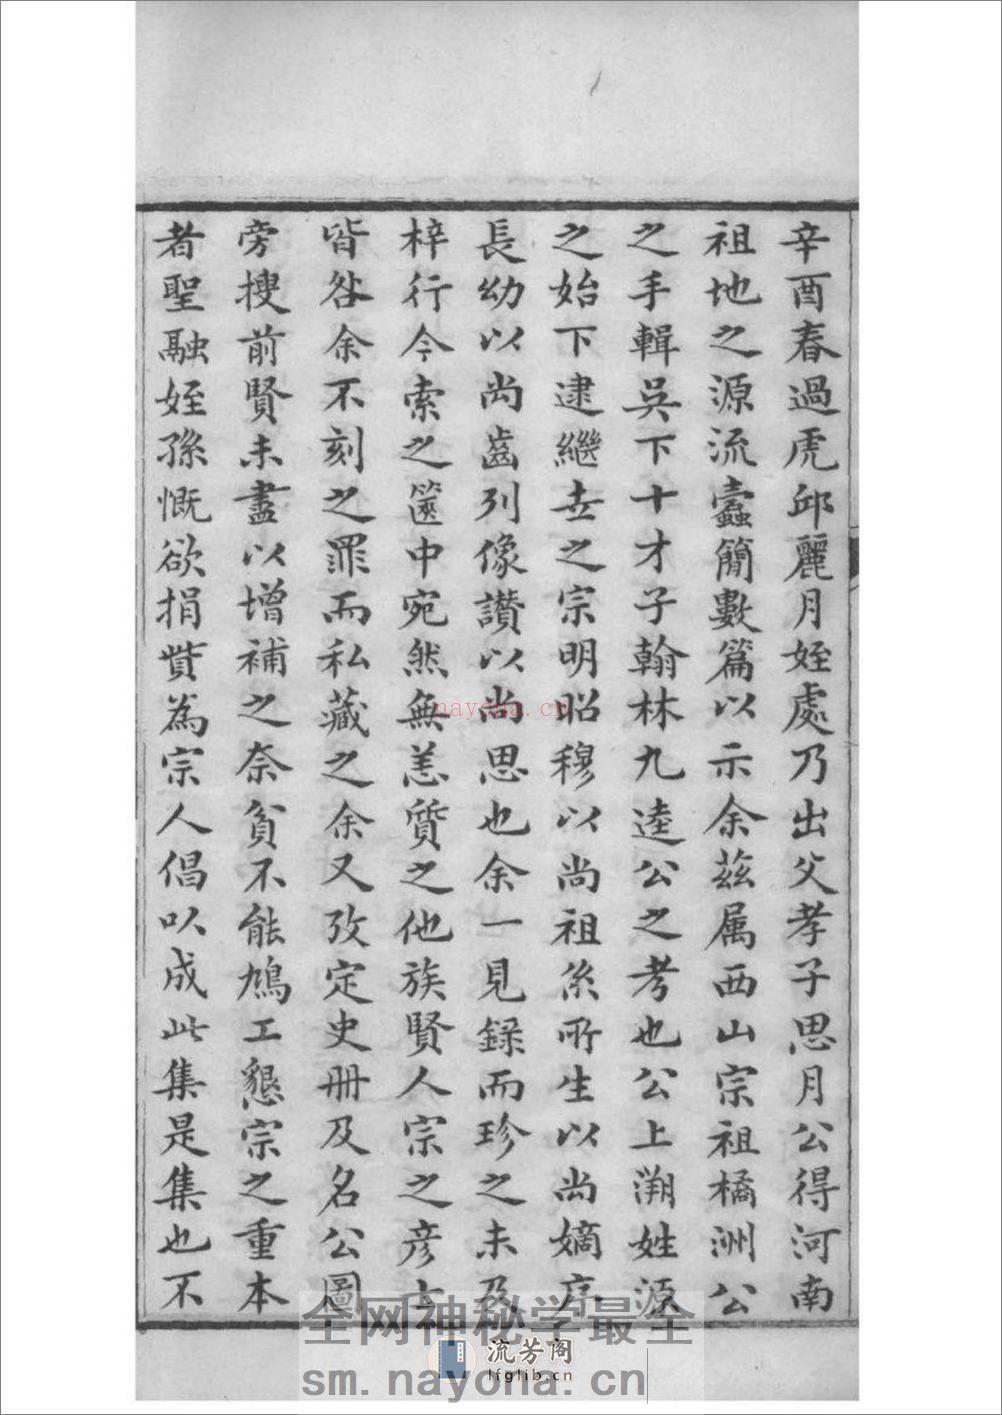 辛酉春過虎邱麗月姪處乃出父孝子思月公得河南
祖地之源流蠹簡數篇以示余茲属西山宗祖橘洲公
之手輯吳下十才子翰林九逵公之考也公上溯姓源
之始下逮繼世之宗明昭穆以尚祖系所生以尚嫡序
長幼以尚齒列像讚以尚思也余一見録而珍之未及
梓行今索之篋中宛然無恙質之他族賢人宗之彦士
皆咎余不刻之罪而私藏之余又攷定史册及名公圖
旁搜前賢未盡以增補之奈貧不能鳩工懇宗之重本
者聖融姪孫慨欲捐貲為宗人倡以成此集是集也不
nayona.cn
全网神秘学最全
流芳阁
lfglib.cn
sm.nayona.cn